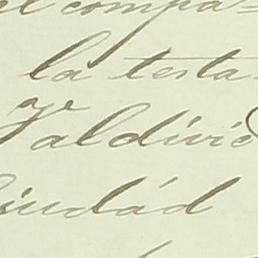 el compa=
la testa-
Valdivie
Ciudád